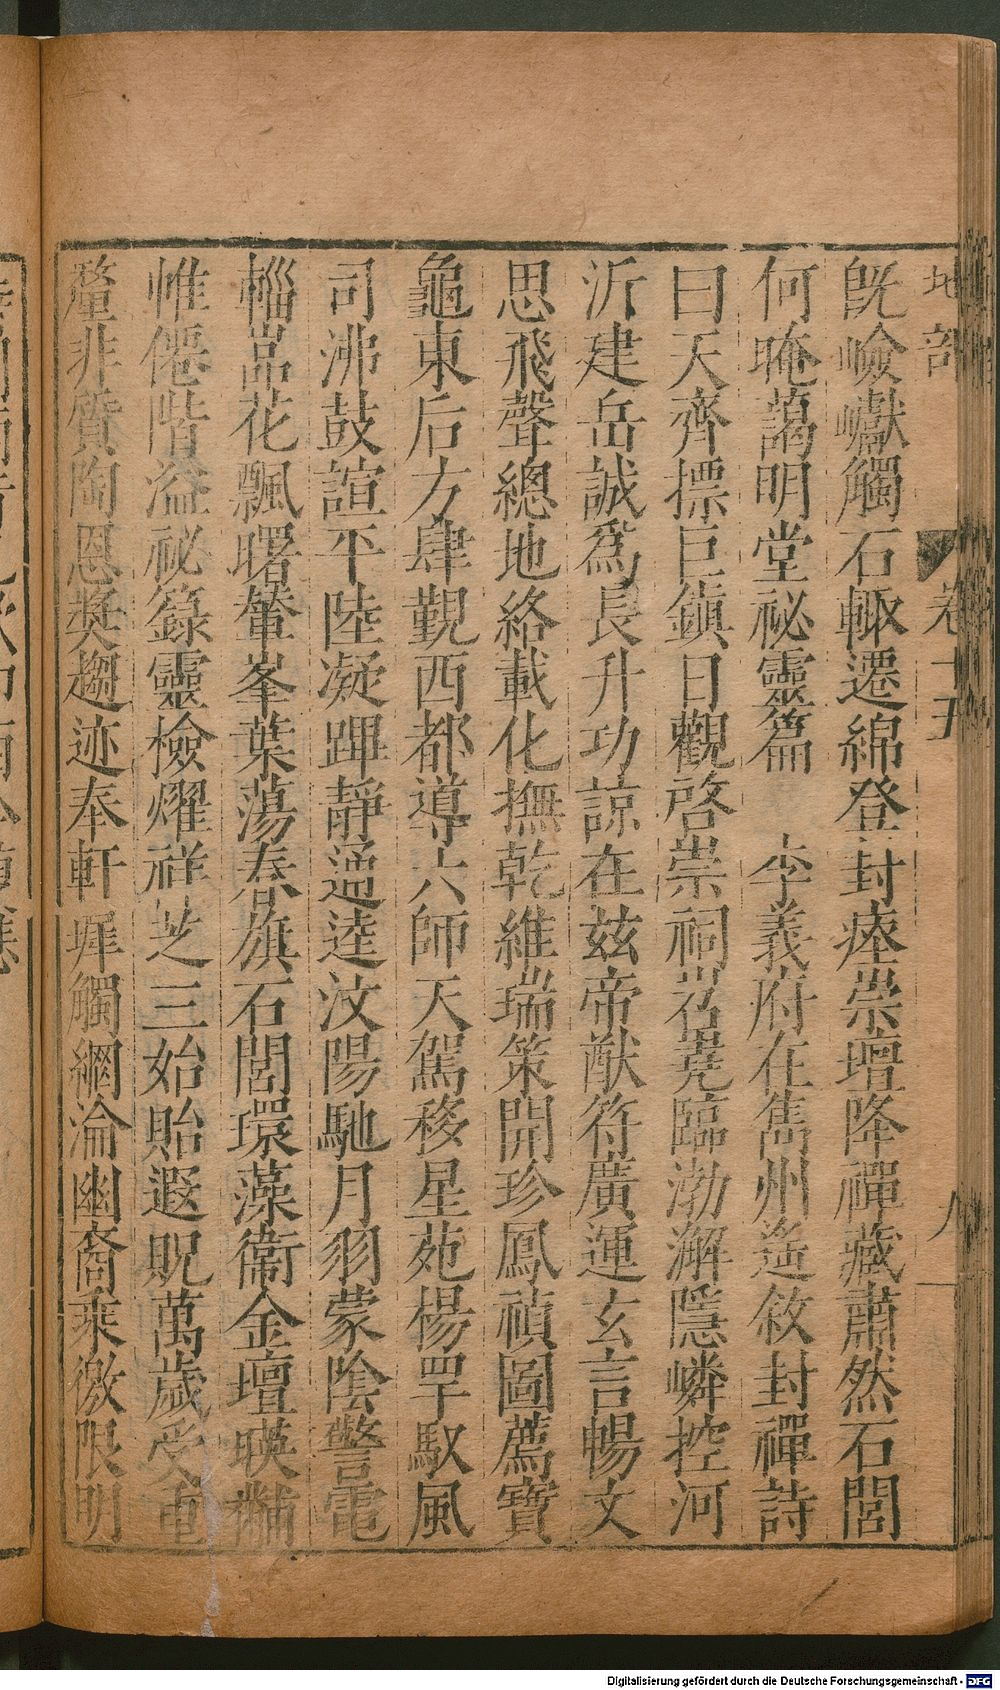 地部 卷十五 八
旣嶮巘觸石輙遷綿登封瘞崇壇降禪藏肅然石閭
何晻藹明堂祕靈篇 李義府在雋州遥敘封禪詩
曰天齊摽巨鎮日觀啓崇祠岧嶤臨渤澥隱嶙控河
沂建岳誠爲長升功諒在兹帝猷符廣運玄言暢文
思飛聲總地絡載化撫乾維瑞策開珍鳳禎圖薦寶
龜東后方肆覲西都導六師天駕移星苑楊罕馭風
司沸鼓諠平陸凝蹕靜通逵汶陽馳月羽蒙陰警電
輜嵓花飄曙輦峯葉蕩春旗石閭環藻衞金壇暎黼
帷僊階溢祕籙靈檢燿祥芝三始貽遐貺萬歲受重
釐非質陶恩奬趨迹奉軒墀觸網淪幽裔乘徼限明
Digitalisierung gefördert durch die Deutsche Forschungsgemeinschaft - DFG